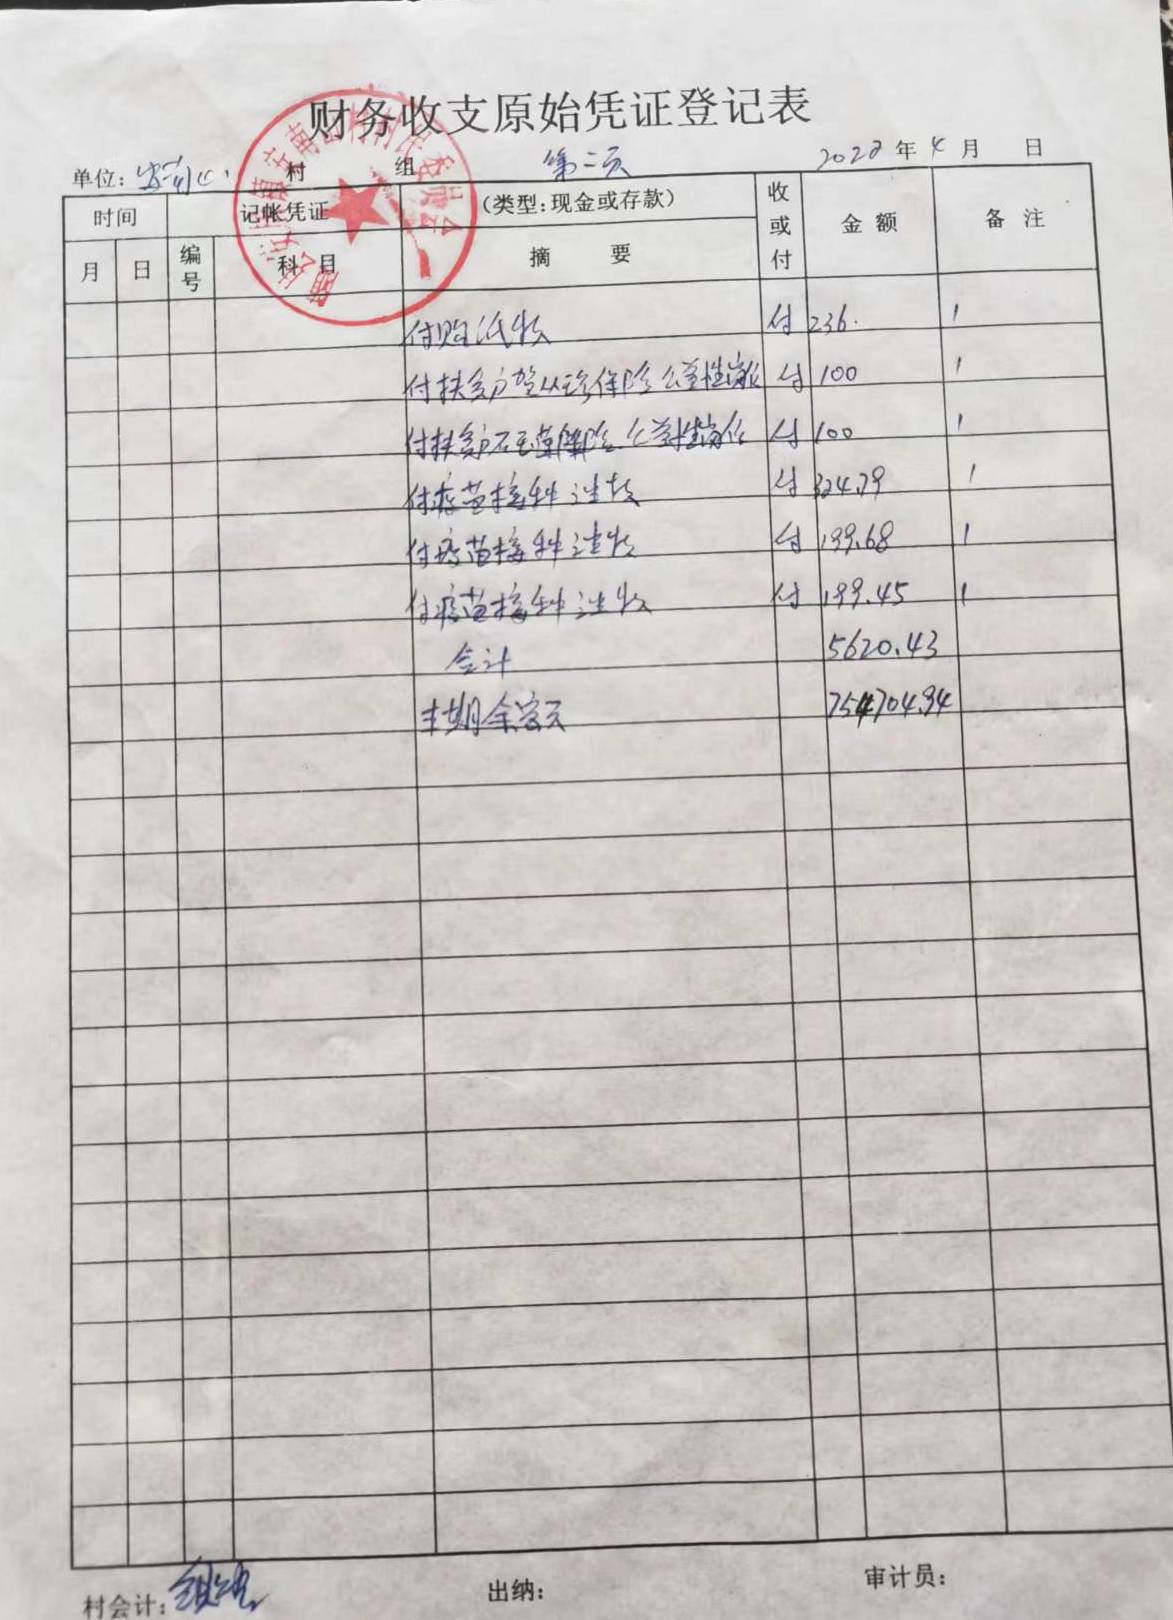 财务收支原始凭证登记表
单位: 村 组 第二页 2022年4月 日
时间 记帐凭证 (类型:现金或存款) 收或付 金额 备注
月 日 编号 科目 摘要
付购 付 236. 1
付扶贫户 保险公益性岗位 付 100 1
付扶贫户 保险公益性岗位 付 100 1
付疫苗接种 付 324.79 1
付疫苗接种 付 199.68 1
付疫苗接种 付 199.45 1
合计 5620.43
本期余额 754704.94
村会计: 出纳: 审计员: